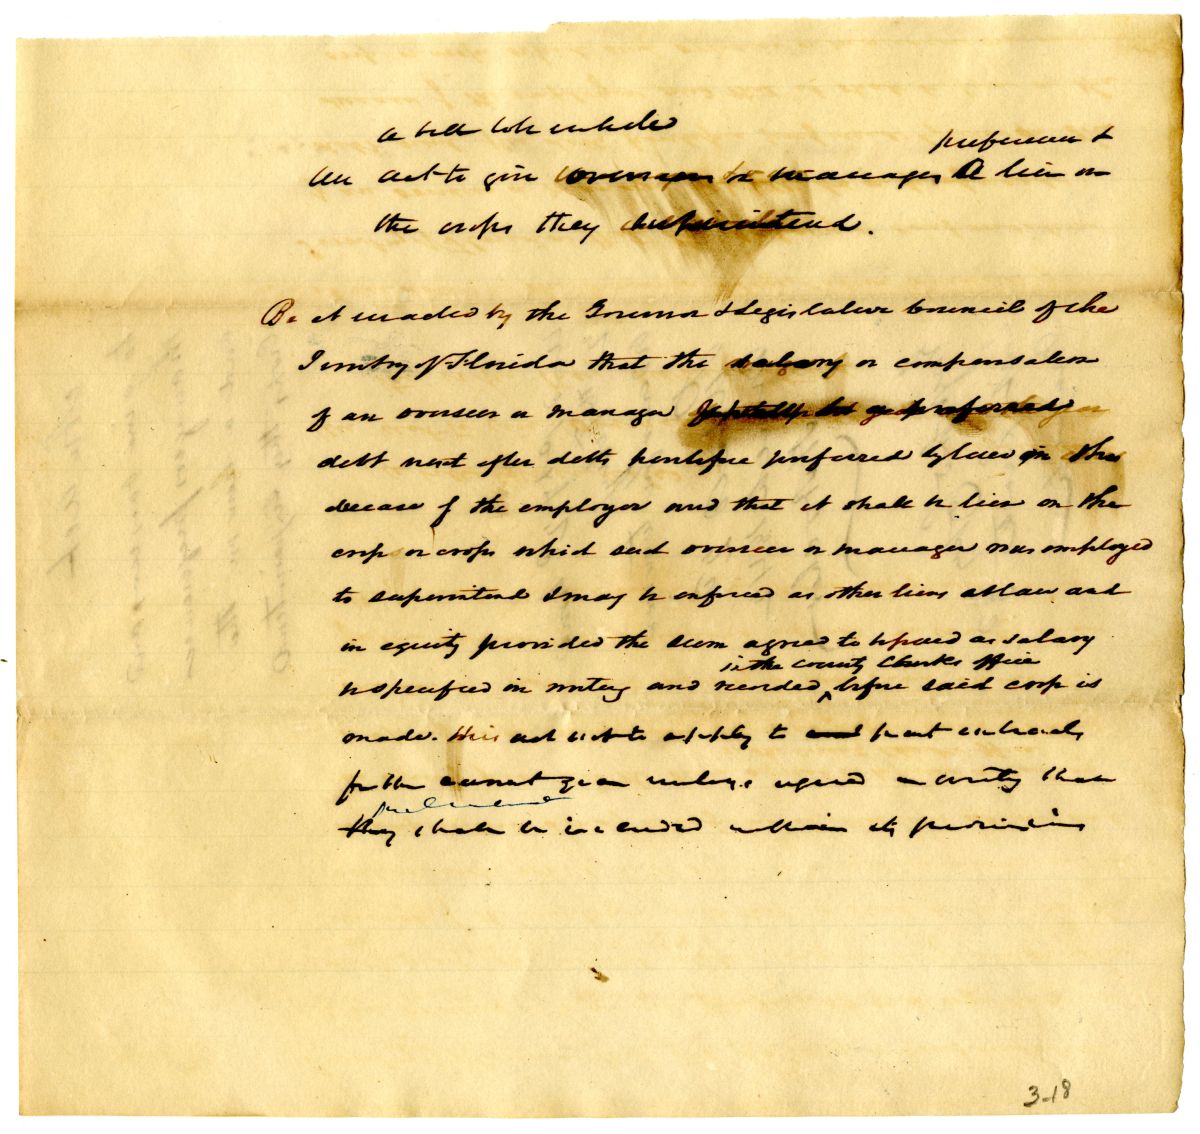 a bill to be entitled
An act to give overseers & managers a preference & lien on
the crops they superintend.
Be it enacted by the Governor & Legislative Council of the
Territory of Florida that the salary or compensation
of an overseer or manager shall be a preferred
debt next after debts heretofore preferred by law in the
decease of the employer and that it shall be lien on the
crop or crops which said overseer or manager was employed
to superintend & may be enforced as other liens at law and
in equity provided the sum agreed to be paid as salary
in the county Clerks office
be specified in writing and recorded before said crop is
made. This act not to apply to past contracts
for the current year unless agreed in writing that
they shall be included within its provisions
3-18